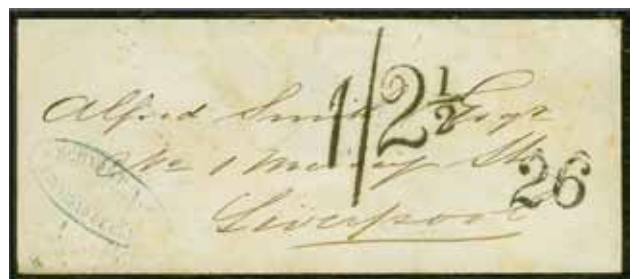 Alfred Smith Esqr
1/2½
No 1 Mersey St
26
Liverpool